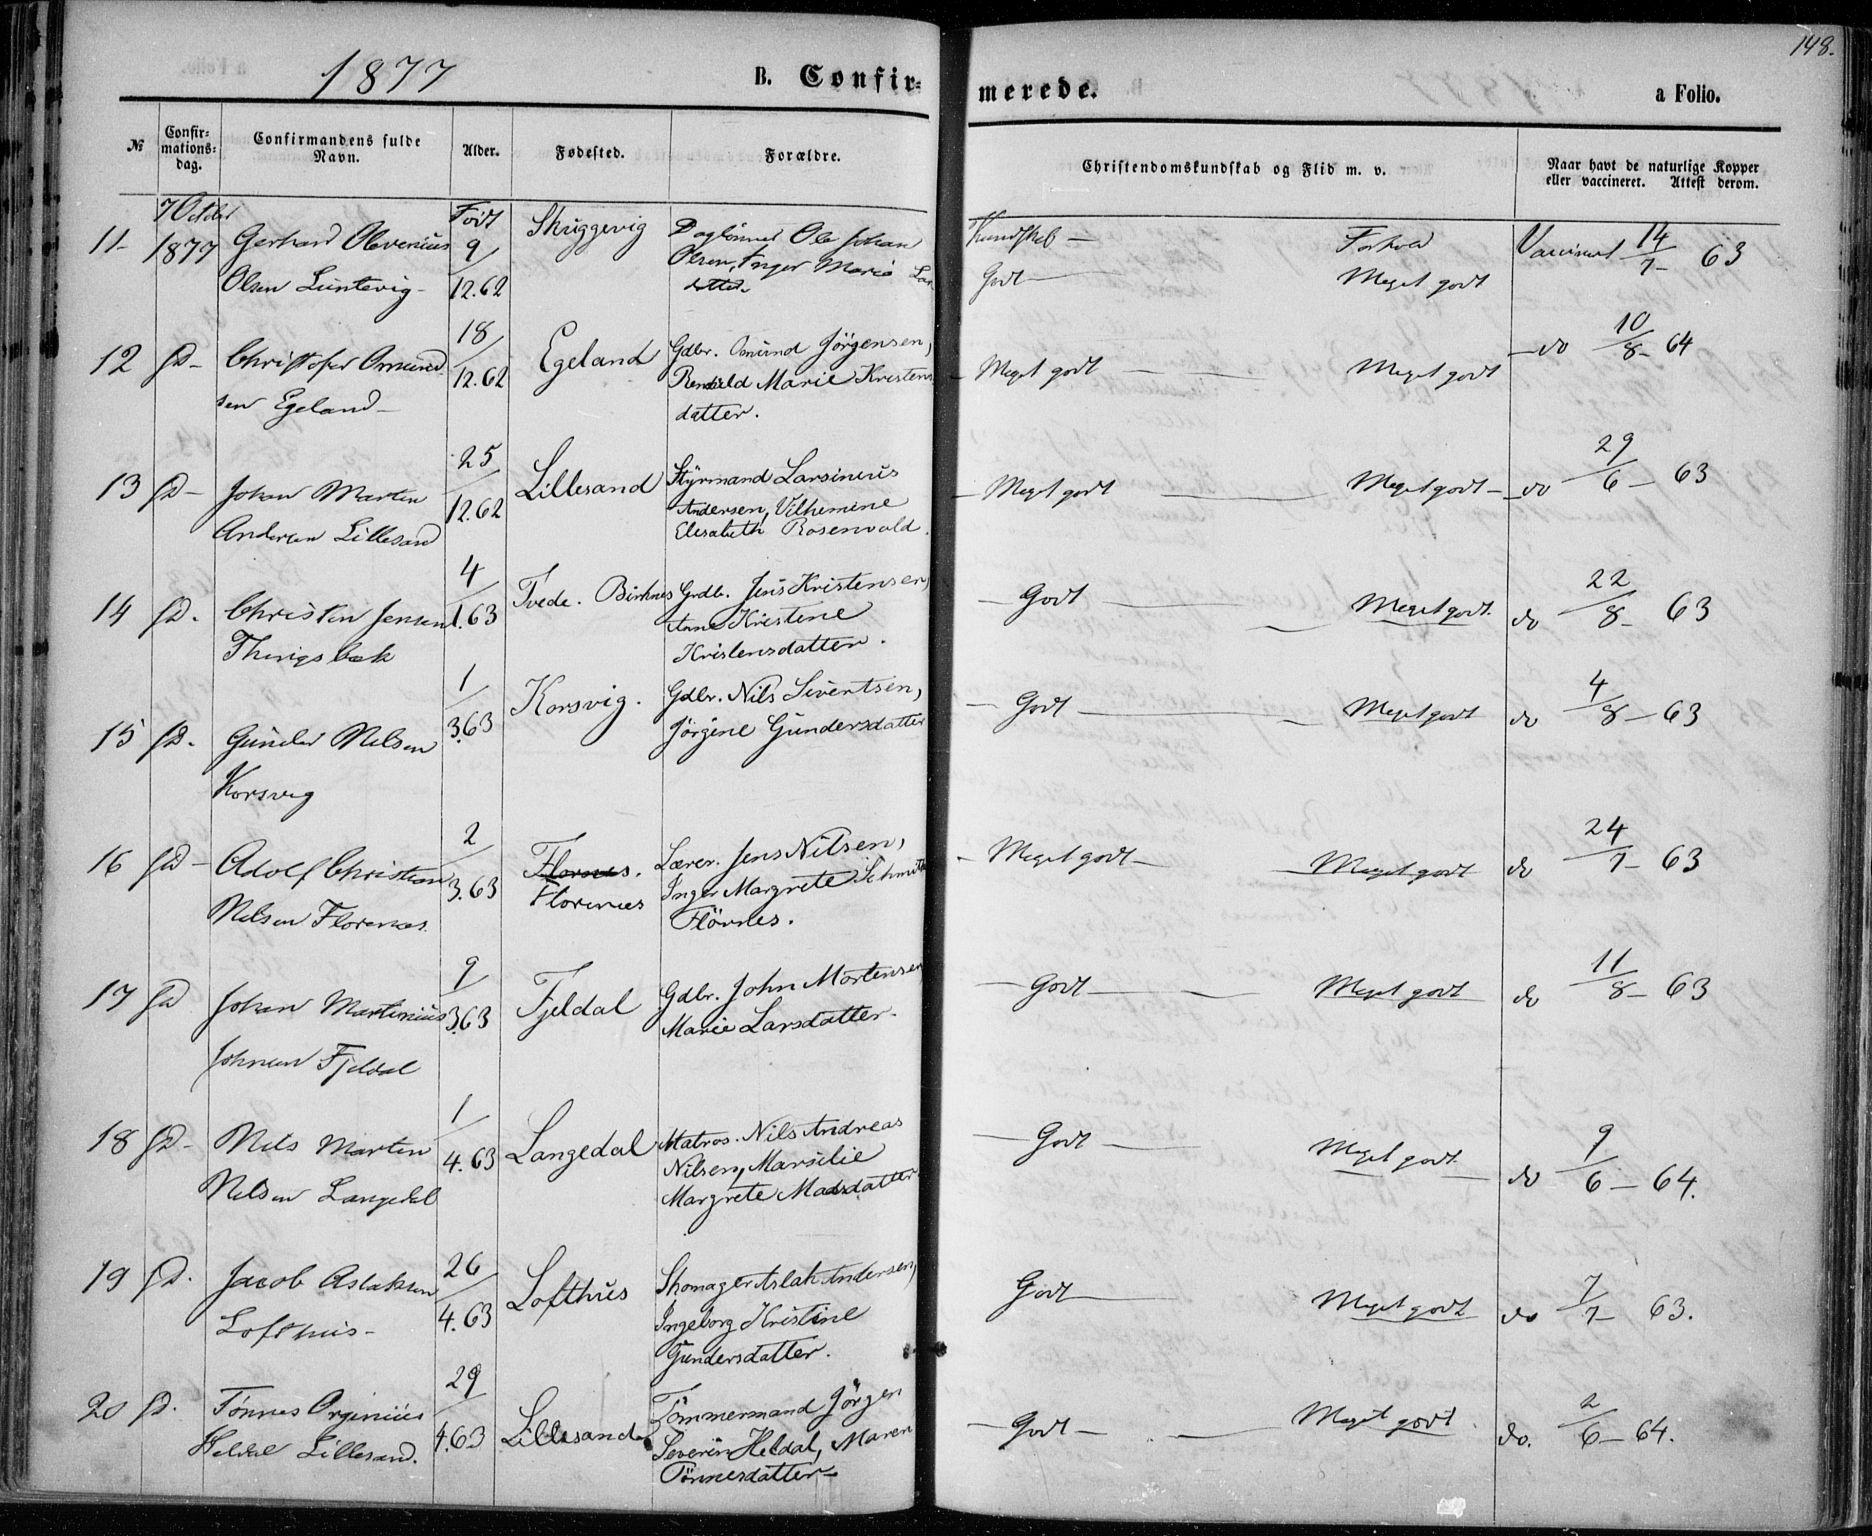 148.
1877 B. Confirmerede. a Folio.
№ Confirmationsdag. Confirmandens fulde Navn. Alder. Fødested. Forældre. Christendomskundskab og Flid m. v. Naar havt de naturlige Kopper eller vaccineret. Attest derom.
7 October Født Kundskab — Forhold
11- 1877 Gerhard Olevenius 9/12.62 Skiggevig Daglønner Ole Johan Godt — Meget godt Vaccineret 14/7- 63
Olsen Luntevig- Olsen, Inger Marie Lar
datter
12 sD- Christofer Omund 18/12.62 Egeland Gdbr. Omund Jörgensen, - Meget godt — Meget godt - do 10/8- 64
sen Egeland- Marie Kristens
datter.
13 sD- Johan Martin 25/12.62 Lillesand Styrmand Larsinius - Meget godt — Meget godt - do 29/6- 63
Andersen Lillesand Andersen, Vilhemine
Elisabeth Rosenvold.
14 sD. Christen Jensen 4/1.63 Tvede. Birknes Grdb. Jens Kristensen, - Godt — Meget godt. do 22/8- 63
Anne Kristene
Kristensdatter.
15 sD. Gunder Nilsen 1/3.63 Korsvig. Gdbr. Nils Sivertsen, - Godt — Meget godt do 4/8- 63
Korsvig Jörgine Gundersdatter
16 sD- Adolf Christian 2/3.63 Flornes. Lærer. Jens Nilsen, - Meget godt — Meget godt do 24/7- 63
Nilsen Florenæs. Florenæs Inger Margrete Schmith
Flörnes.
17 sD Johan Martinius 9/3.63 Fjeldal Gdbr. John Mortensen - Godt — Meget godt do 11/8- 63
Johnsen Fjeldal Marie Larsdatter.
18 sD- Nils Martin 1/4.63 Langedal Matros. Nils Andreas - Godt — Meget godt. do 9/6- 64.
Nilsen Langedal Nilsen, Marsilie
Margrete Madsdatter
19 sD. Jacob Aslaksen 26/4.63 Lofthus Skomager Aslak Andersen, Godt — Meget godt do 7/7- 63.
Lofthus- Ingeborg Kristine
Gundersdatter.
20 sD. Tønnes Orginius 29/4.63 Lillesand Tömmermand Jörgen - Godt — Meget godt. do. 2/6- 64.
Heldal Lillesand. Severin Heldal, Maren
Tönnesdatter-